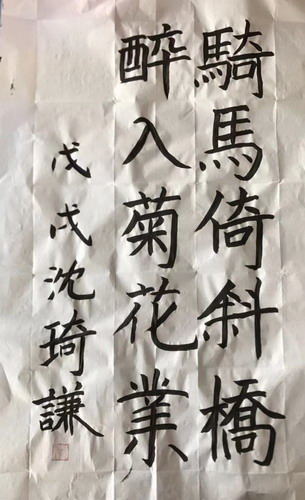 騎馬倚斜橋
醉入菊花業
戊戌沈琦謙